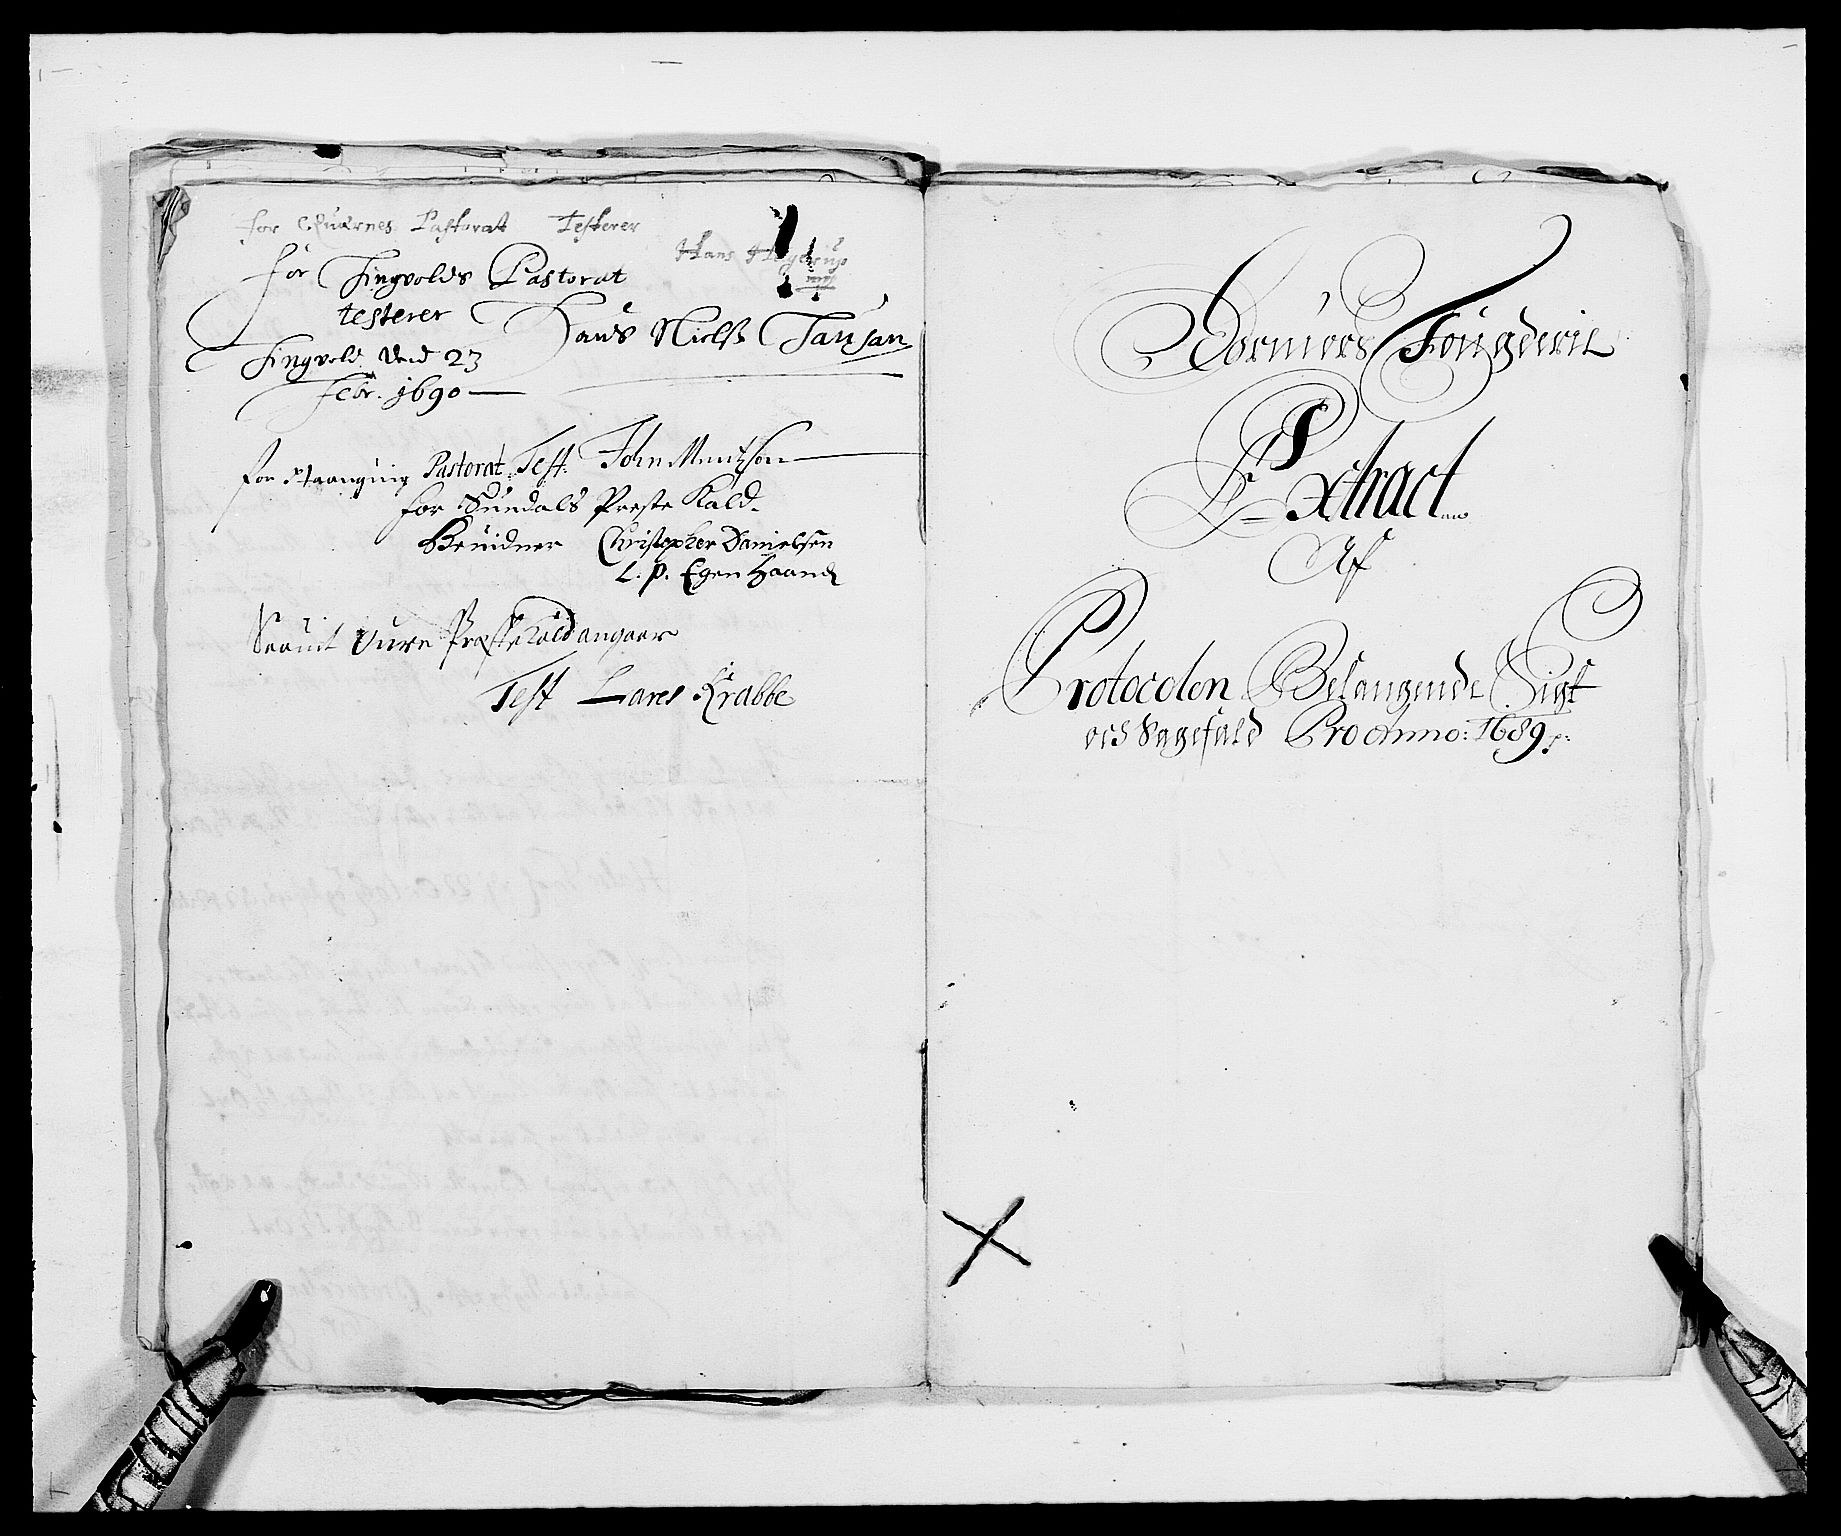 for Quernes Pastorat Testerer
Hans Hagerup
mpp
for Tingvolds Pastorat
testerer Hans Nielß Tausan
Tingvold dend 23
Febr. 1690
for Staangvig Pastorat Test: John Mentzson
for Sundals Preste Kald
Bevidner Christopher Danielsen
L. P. Egen Haand
Saauit Vure Præstekald angaar
Test Lares Krabbe
Normørs Fougderie
Extract
Af
Protocolen Belangende Sigt
och Sagefald Pro Anno: 1689